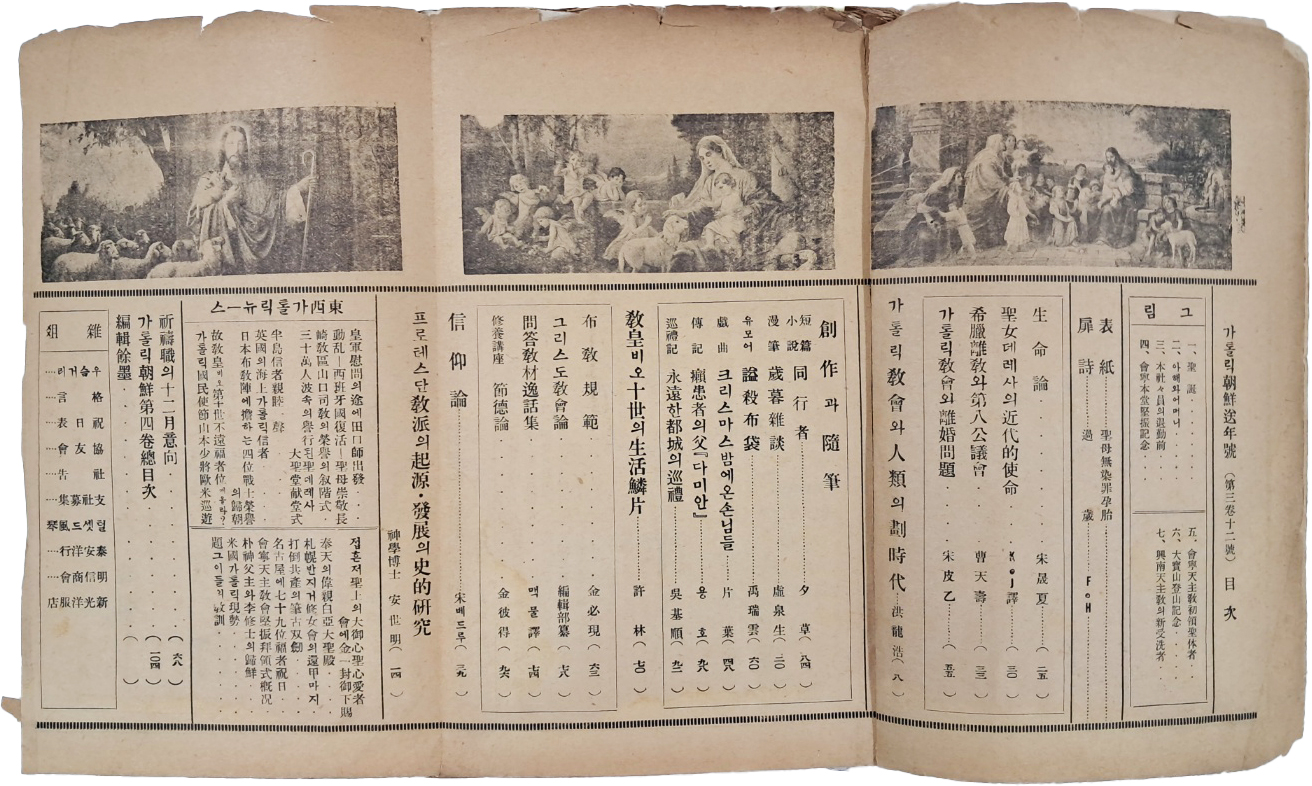 가톨릭朝鮮送年號 (第三卷十二號) 目次
그림
一、聖誕
二、아해와어머니
三、本社々員의退勤前
四、會寧本堂堅振記念
五、會寧天主敎初領聖体者
六、大寶山登山記念
七、興南天主敎의新受洗者
表紙 聖母無染罪孕胎
扉詩 過歲 F o H
生命論 宋晟夏 (二五)
聖女데레사의近代的使命 KOJ譯 (三〇)
希臘離敎와第八公議會 曹天壽 (三三)
가톨릭敎會와離婚問題 宋皮乙 (五五)
가톨릭敎會와人類의劃時代 洪龍浩 (八)
創作과隨筆
短篇小說 同行者 夕草 (八四)
漫筆 歲暮雜談 虛泉生 (二〇)
유모어 謚殺布袋 禹瑞雲 (六〇)
戱曲 크리스마스밤에온손님들 片葉 (四八)
傳記 癩患者의父『다미안』 용호 (九八)
巡禮記 永遠한都城의巡禮 吳基順 (九二)
敎皇비오十世의生活鱗片 許林 (七〇)
布敎規範 金必現 (六三)
그리스도敎會論 編輯部纂 (七八)
問答敎材逸話集 맥물譯 (七四)
修養講座 節德論 金彼得 (九六)
信仰論 宋베드루 (三九)
프로테스단敎派의起源・發展의史的硏究 神學博士 安世明 (一四)
東西가톨릭뉴ー스
皇軍慰問의途에田口師出發
動乱ー西班牙國復活ー聖母崇敬長
崎敎區山口司敎의榮譽의敘階式
三十萬人波蘭의譽行된聖데레사
大聖堂献堂式
半島信者親睦一聲
英國의海上가톨릭信者
日本布敎陣에擔하는四位戰士榮譽
의歸朝
故敎皇비오第十世不遠福者位에올라?
가톨릭國民使節山本少將歐米巡遊
접흔저聖上의大御心聖心愛者
會에金一封御下賜
奉天의偉親白亞大聖殿
札幌반지거修女會의還甲마지
打倒共産의筆古双劍
名古屋에七十九位福者祝日
會寧天主敎會堅振拜領式槪况
朴神父主와李修士의歸鮮
米國가톨릭現勢
題그이들의敎訓
祈禱職의十二月意向 (六八)
가톨릭朝鮮第四卷總目次 (一〇四)
編輯餘墨 ( )
雜俎
우슴거리
格言
祝日表
協友會
社告
支社募集
릴셋드風琴
泰安洋行
明信商會
新光洋服店